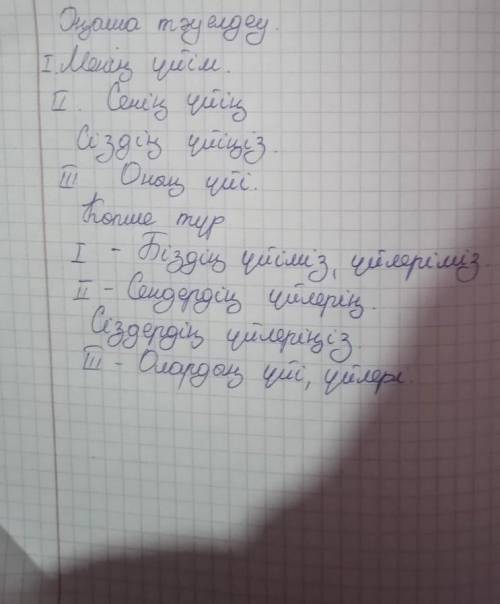 Оңаша тәуелдеу.
I. Менің үйім.
II. Сенің үйің
Сіздің үйіңіз.
III Оның үйі.
Көпше түр
I - Біздің үйіміз, үйлеріміз
II - Сендердің үйлерің.
Сіздердің үйлеріңіз
III - Олардың үйі, үйлері.